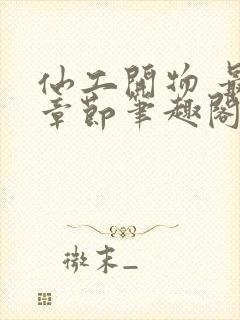 仙工開物 最
章節筆趣閣
微末_